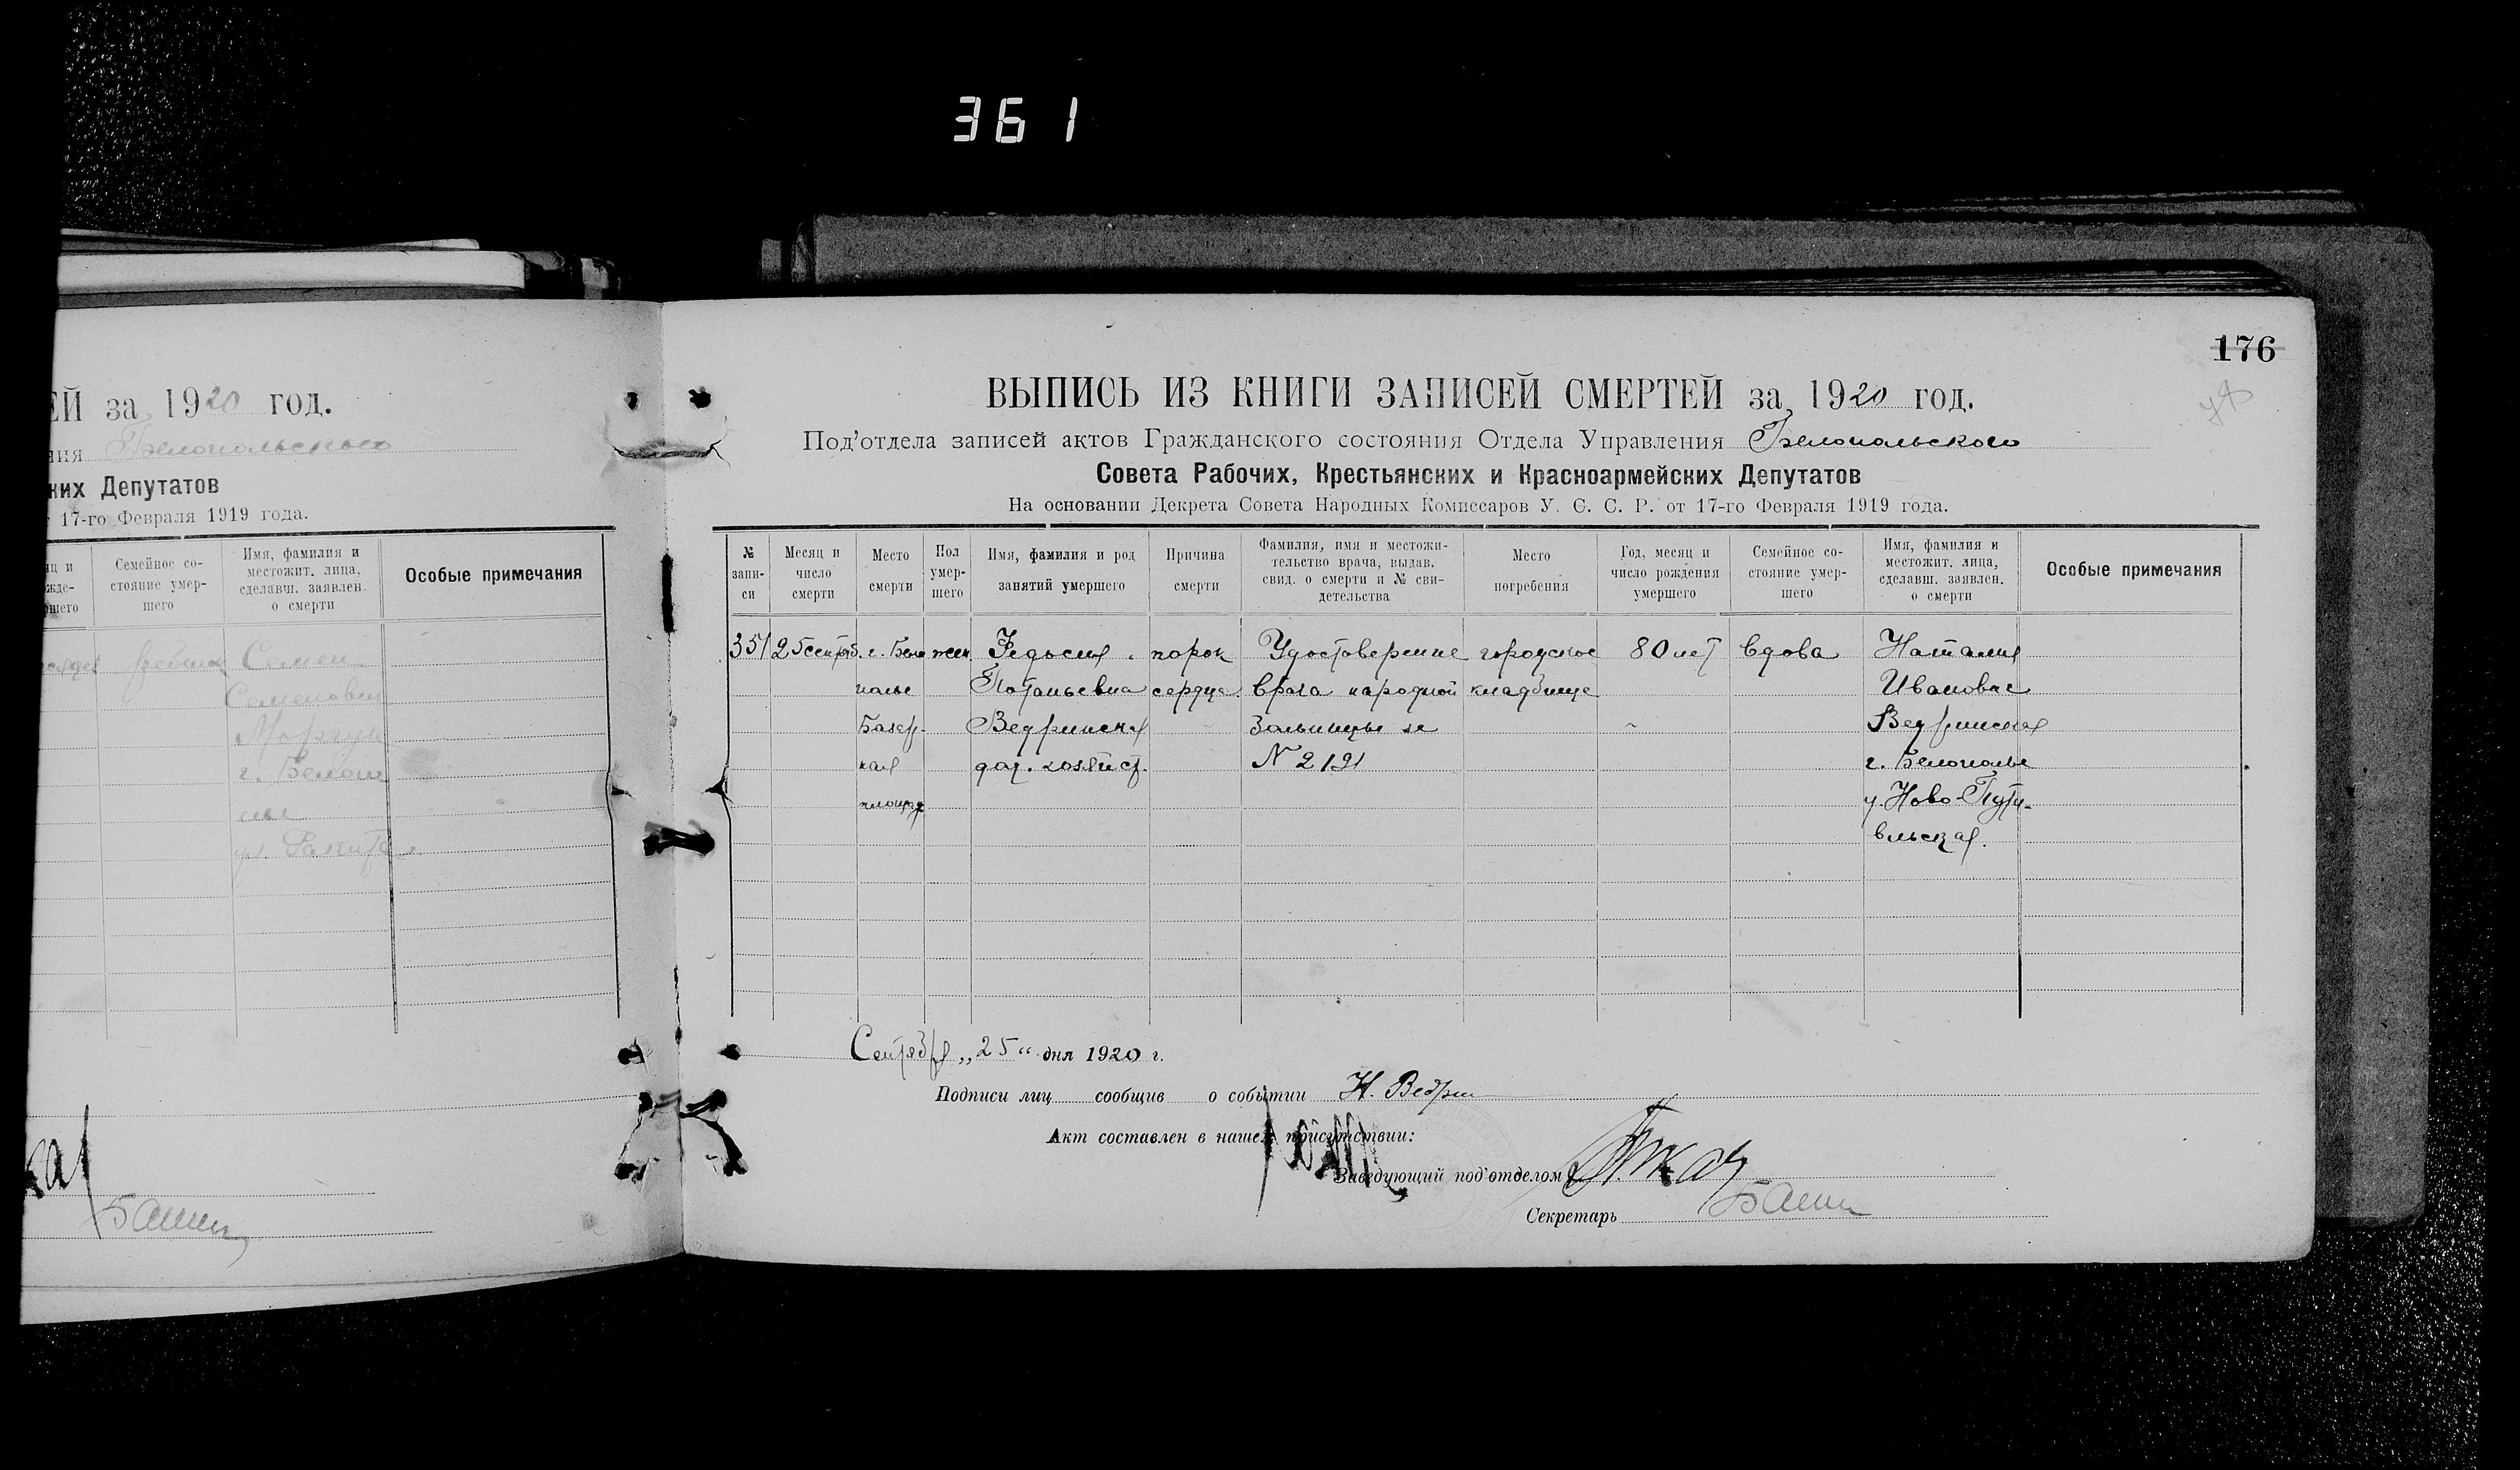 361
ЕЙ за 1920 год.
ния Белопольского
ких Депутатов
17-го Февраля 1919 года.
Семейное со-
стояние умер-
шего
Имя, фамилия и
местожит. лица,
сделавш. заявлен.
о смерти
Особые примечания
Семен
Семенович
г. Белопо
Башин
176
ВЫПИСЬ ИЗ КНИГИ ЗАПИСЕЙ СМЕРТЕЙ за 1920 год.
Под'отдела записей актов Гражданского состояния Отдела Управления Белопольского
Совета Рабочих, Крестьянских и Красноармейских Депутатов
На основании Декрета Совета Народных Комиссаров У. С. С. Р. от 17-го Февраля 1919 года.
№
запи-
си
Месяц и
число
смерти
Место
смерти
Пол
умер-
шего
Имя, фамилия и род
занятий умершего
Причина
смерти
Фамилия, имя и местожи-
тельство врача, выдав.
свид. о смерти и № сви-
детельства
Место
погребения
Год, месяц и
число рождения
умершего
Семейное со-
стояние умер-
шего
Имя, фамилия и
местожит. лица,
сделавш. заявлен.
о смерти
Особые примечания
351
25 сентяб.
г. Бело
полье
Базар-
ная
площад
жен
Федосия
Потапьевна
Ведринская
дом. хозяйст.
порок
сердца
Удостоверение
врача народной
больницы за
N 2191
городское
кладбище
80 лет
вдова
Наталия
Ивановна
Ведринская
г. Белополье
у. Ново-Пути-
вльская.
Сентября „25“ дня 1920 г.
Подписи лиц сообщив о событии Н. Ведрин
Акт составлен в нашем присутствии:
Заведующий под'отделом
Секретарь